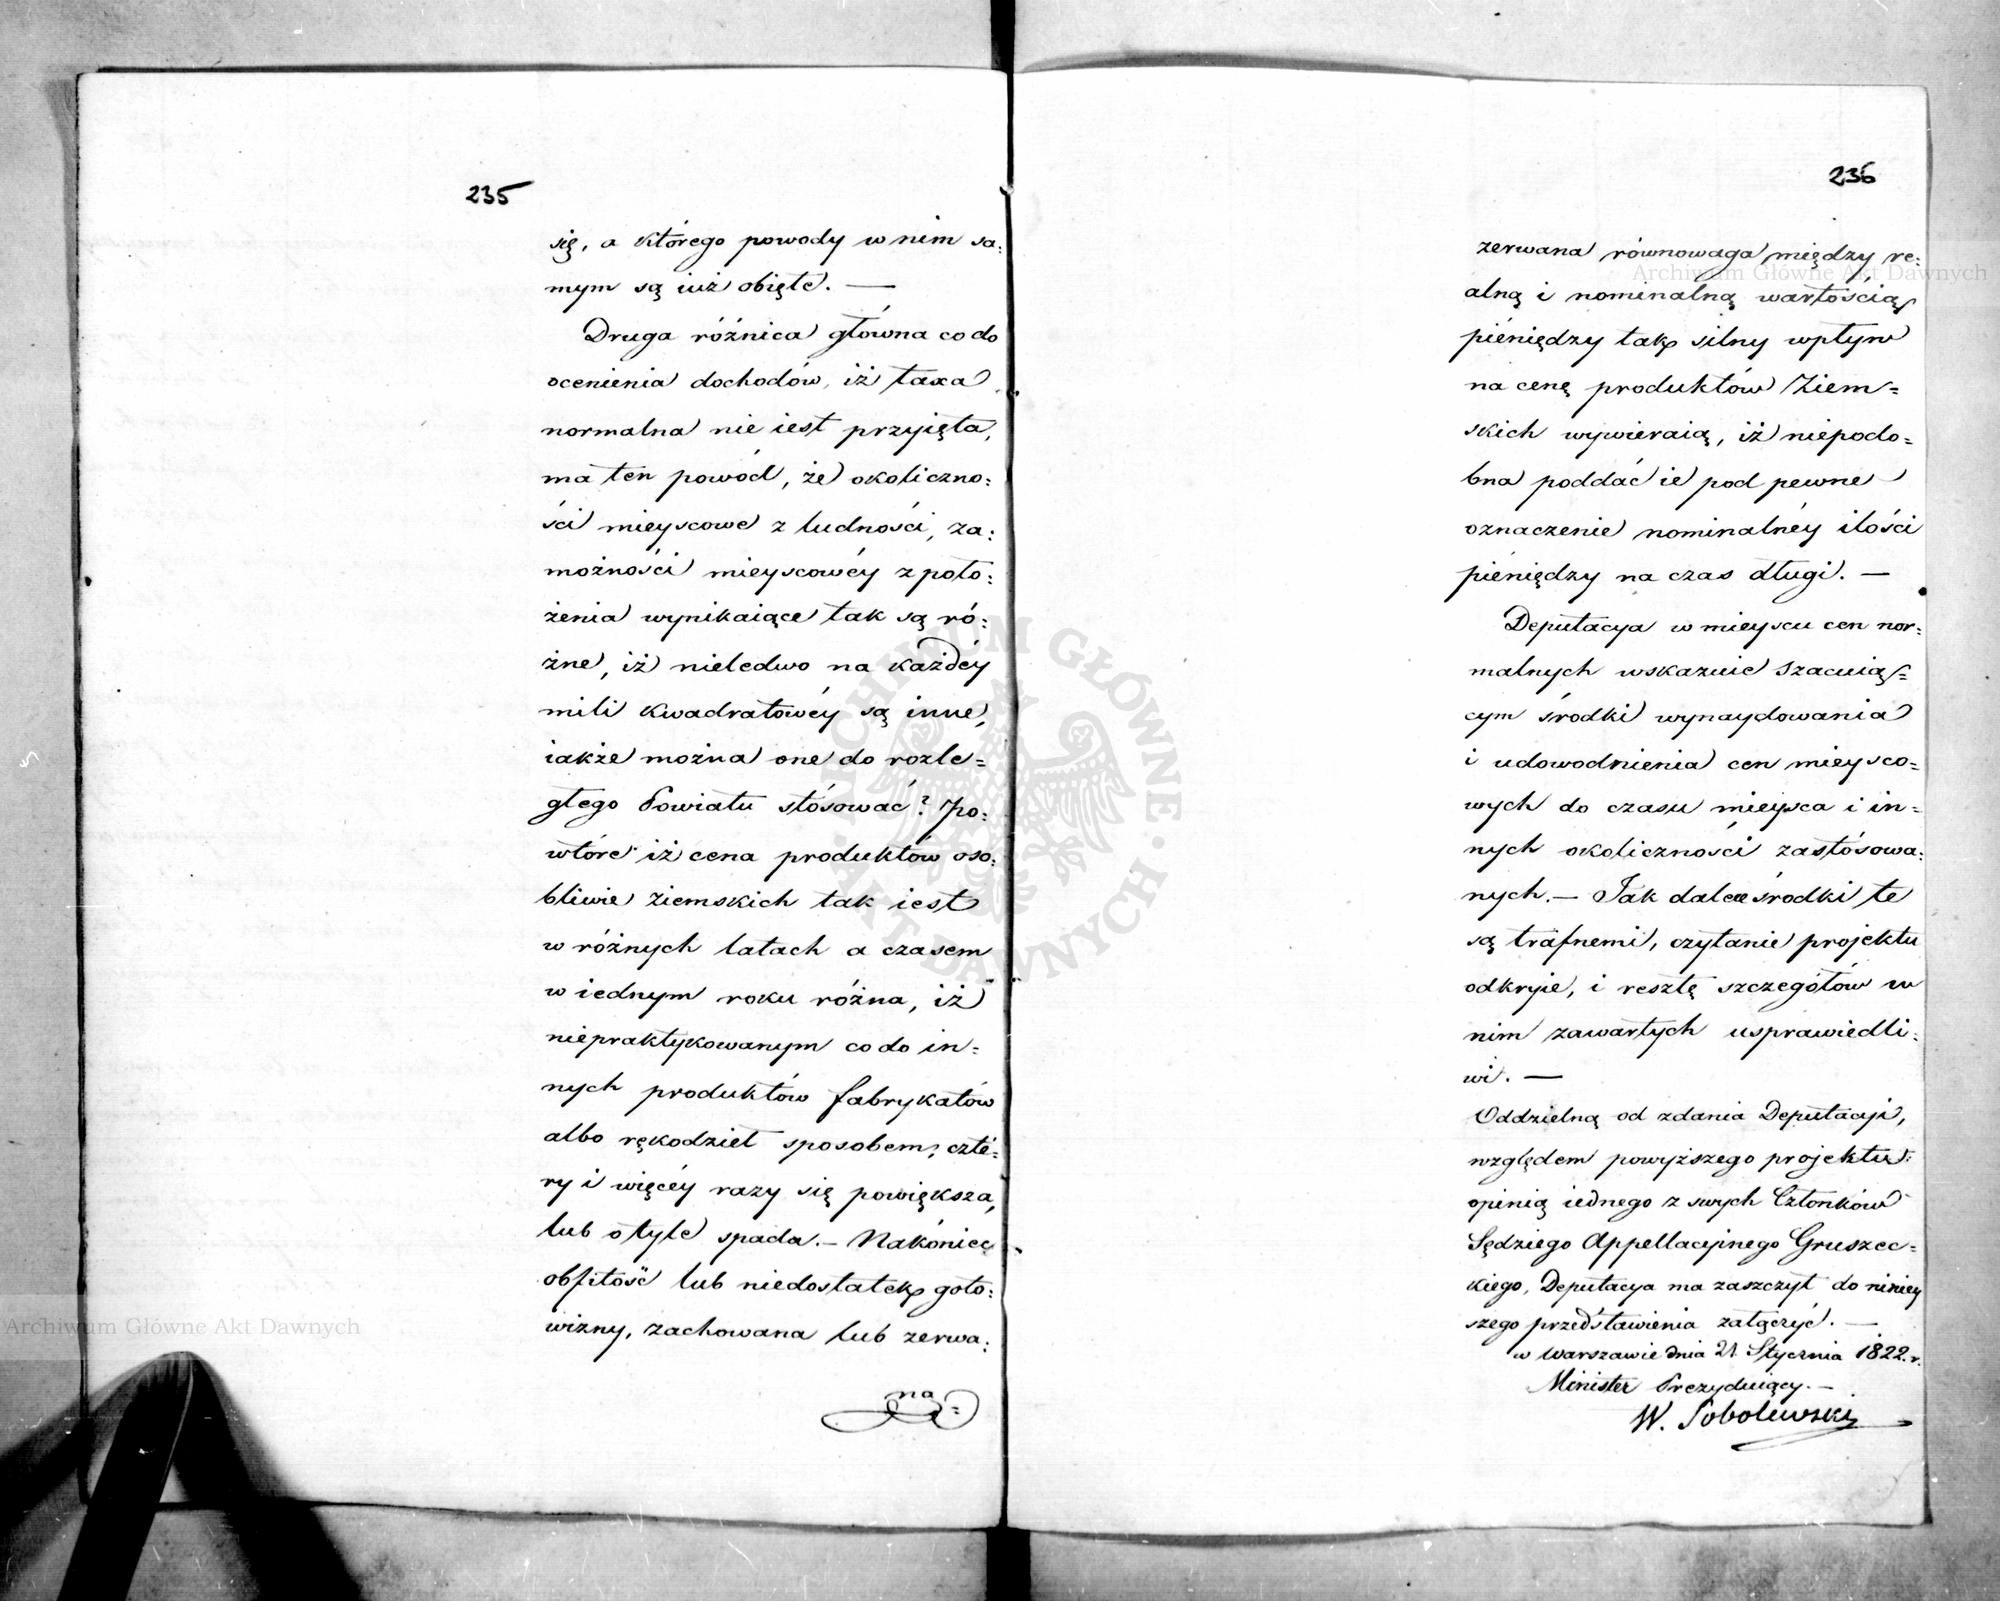 235
się, a którego powody w nim sa:
mym są iuż obięte. —
Druga różnica główna co do
ocenienia dochodów, iż taxa
normalna nie iest przyięta,
ma ten powód, że okoliczno:
ści mieyscowe z ludności, za:
możności mieyscowéy z poło:
żenia wynikaiące tak są ró:
żne, iż nieledwo na każdéy
mili kwadratowéy są inne,
iakże można one do rozle=
głego Powiatu stósować? Po:
wtóre iż cena produktów oso:
bliwie ziemskich tak iest
w różnych latach a czasem
w iednym roku różna, iż
niepraktykowanym co do in=
nych produktów fabrykatów
albo rękodzieł sposobem, czté=
ry i więcéy razy się powiększa,
lub o tyle spada. — Nakóniec
obfitość lub niedostatek goto:
wizny, zachowana lub zerwa:
na =
236
zerwana równowaga między re:
alną i nominalną wartością
pieniędzy tak silny wpływ
na cenę produktów Ziem=
skich wywieraią, iż niepodo=
bna poddać ie pod pewne
oznaczenie nominalnéy ilości
pieniędzy na czas długi. —
Deputacya w mieyscu cen nor:
malnych wskazuie szacuią=
cym środki wynaydowania
i udowodnienia cen mieysco=
wych do czasu mieysca i in=
nych okoliczności zastósowa:
nych. — Jak dalece środki te
są trafnemi, czytanie projektu
odkryie, i resztę szczegółów w
nim zawartych usprawiedli:
wi. —
Oddzielną od zdania Deputacyi,
względem powyższego projektu
opinią iednego z swych Członków
Sędziego Appellacyinego Gruszec=
kiego, Deputacya ma zaszczyt do niniey
szego przedstawienia załączyć. —
w Warszawie dnia 21 Stycznia 1822. r.
Minister Prezyduiący. —
W. Sobolewski
Archiwum Główne Akt Dawnych
Archiwum Główne Akt Dawnych
ARCHIWUM GŁÓWNE · AKT DAWNYCH ·